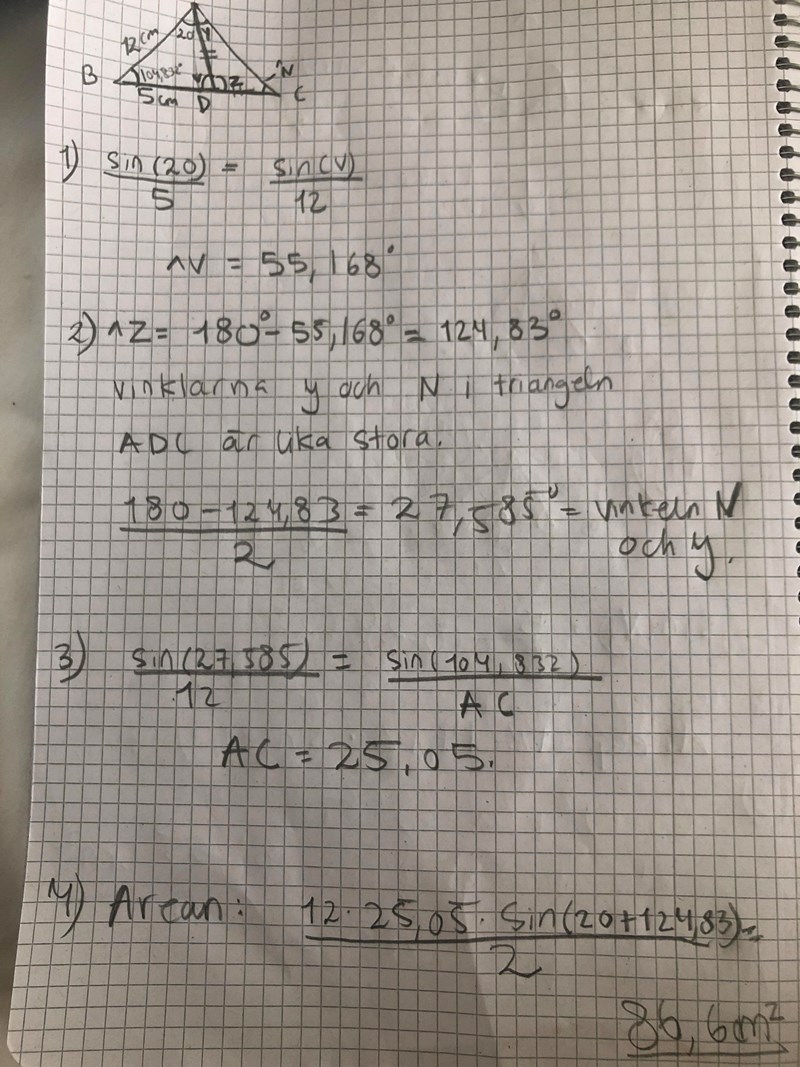 12cm
20 y
B 104,832° v z N
5cm D C
1) sin(20)/5 = sin(v)/12
^V = 55,168°
2) ^Z = 180° - 55,168° = 124,83°
vinklarna y och N i triangeln
ADC är lika stora.
180-124,83/2 = 27,585° = vinkeln N
och y.
3) sin(27,585)/12 = sin(104,832)/AC
AC = 25,05.
4) Arean: 12·25,05·sin(20+124,83)/2 =
86,6cm²